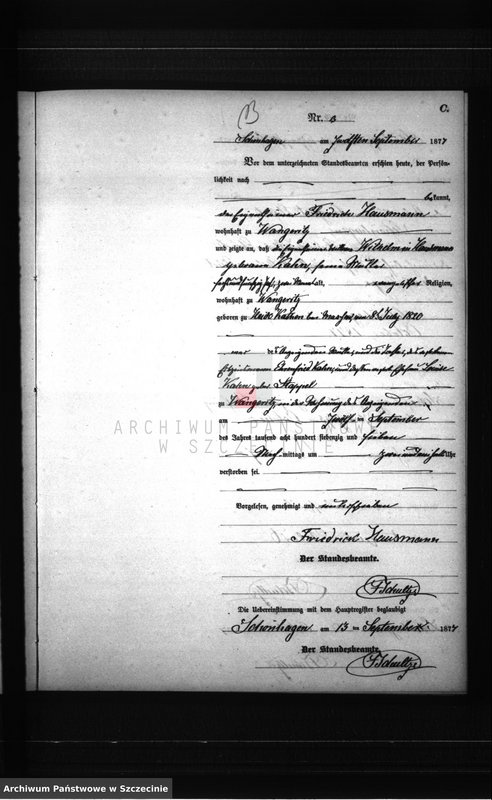 B
C.
Nr. 8
Schönhagen am zwölften September 1877
Vor dem unterzeichneten Standesbeamten erschien heute, der Persön-
lichkeit nach
bekannt,
der Eigenthümer Friedrich Hausmann
wohnhaft zu Wangeritz
und zeigte an, daß die Wilhelmine Hausmann
geborene Kahn, seine Mutter
alt, evangelischer Religion,
wohnhaft zu Wangeritz
geboren zu bei am 8. 1820
des Anzeigenden
Kahn, und dessen Louise
Kahn geb. Stappel
zu Wangeritz, in der Wohnung des Anzeigenden
am zwölften September
des Jahres tausend acht hundert siebenzig und sieben
Nach-mittags um zwei und ein halb Uhr
verstorben sei.
Vorgelesen, genehmigt und unterschrieben
Friedrich Hausmann
Der Standesbeamte.
Schultze
Die Uebereinstimmung mit dem Hauptregister beglaubigt
Schönhagen am 13 ten September 1877
Der Standesbeamte.
Schultze
ARCHIWUM PAŃSTWOWE
W SZCZECINIE
Archiwum Państwowe w Szczecinie